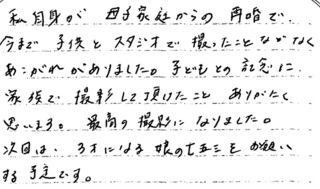 私自身が 母子家庭からの 再婚で、
今まで 子供と スタジオで 撮ったことなどなく
あこがれがありました。子どもとの記念に
家族で 撮影して頂けたこと ありがたく
思います。最高の撮影になりました。
次回は、3才になる娘の七五三をお願い
する予定です。